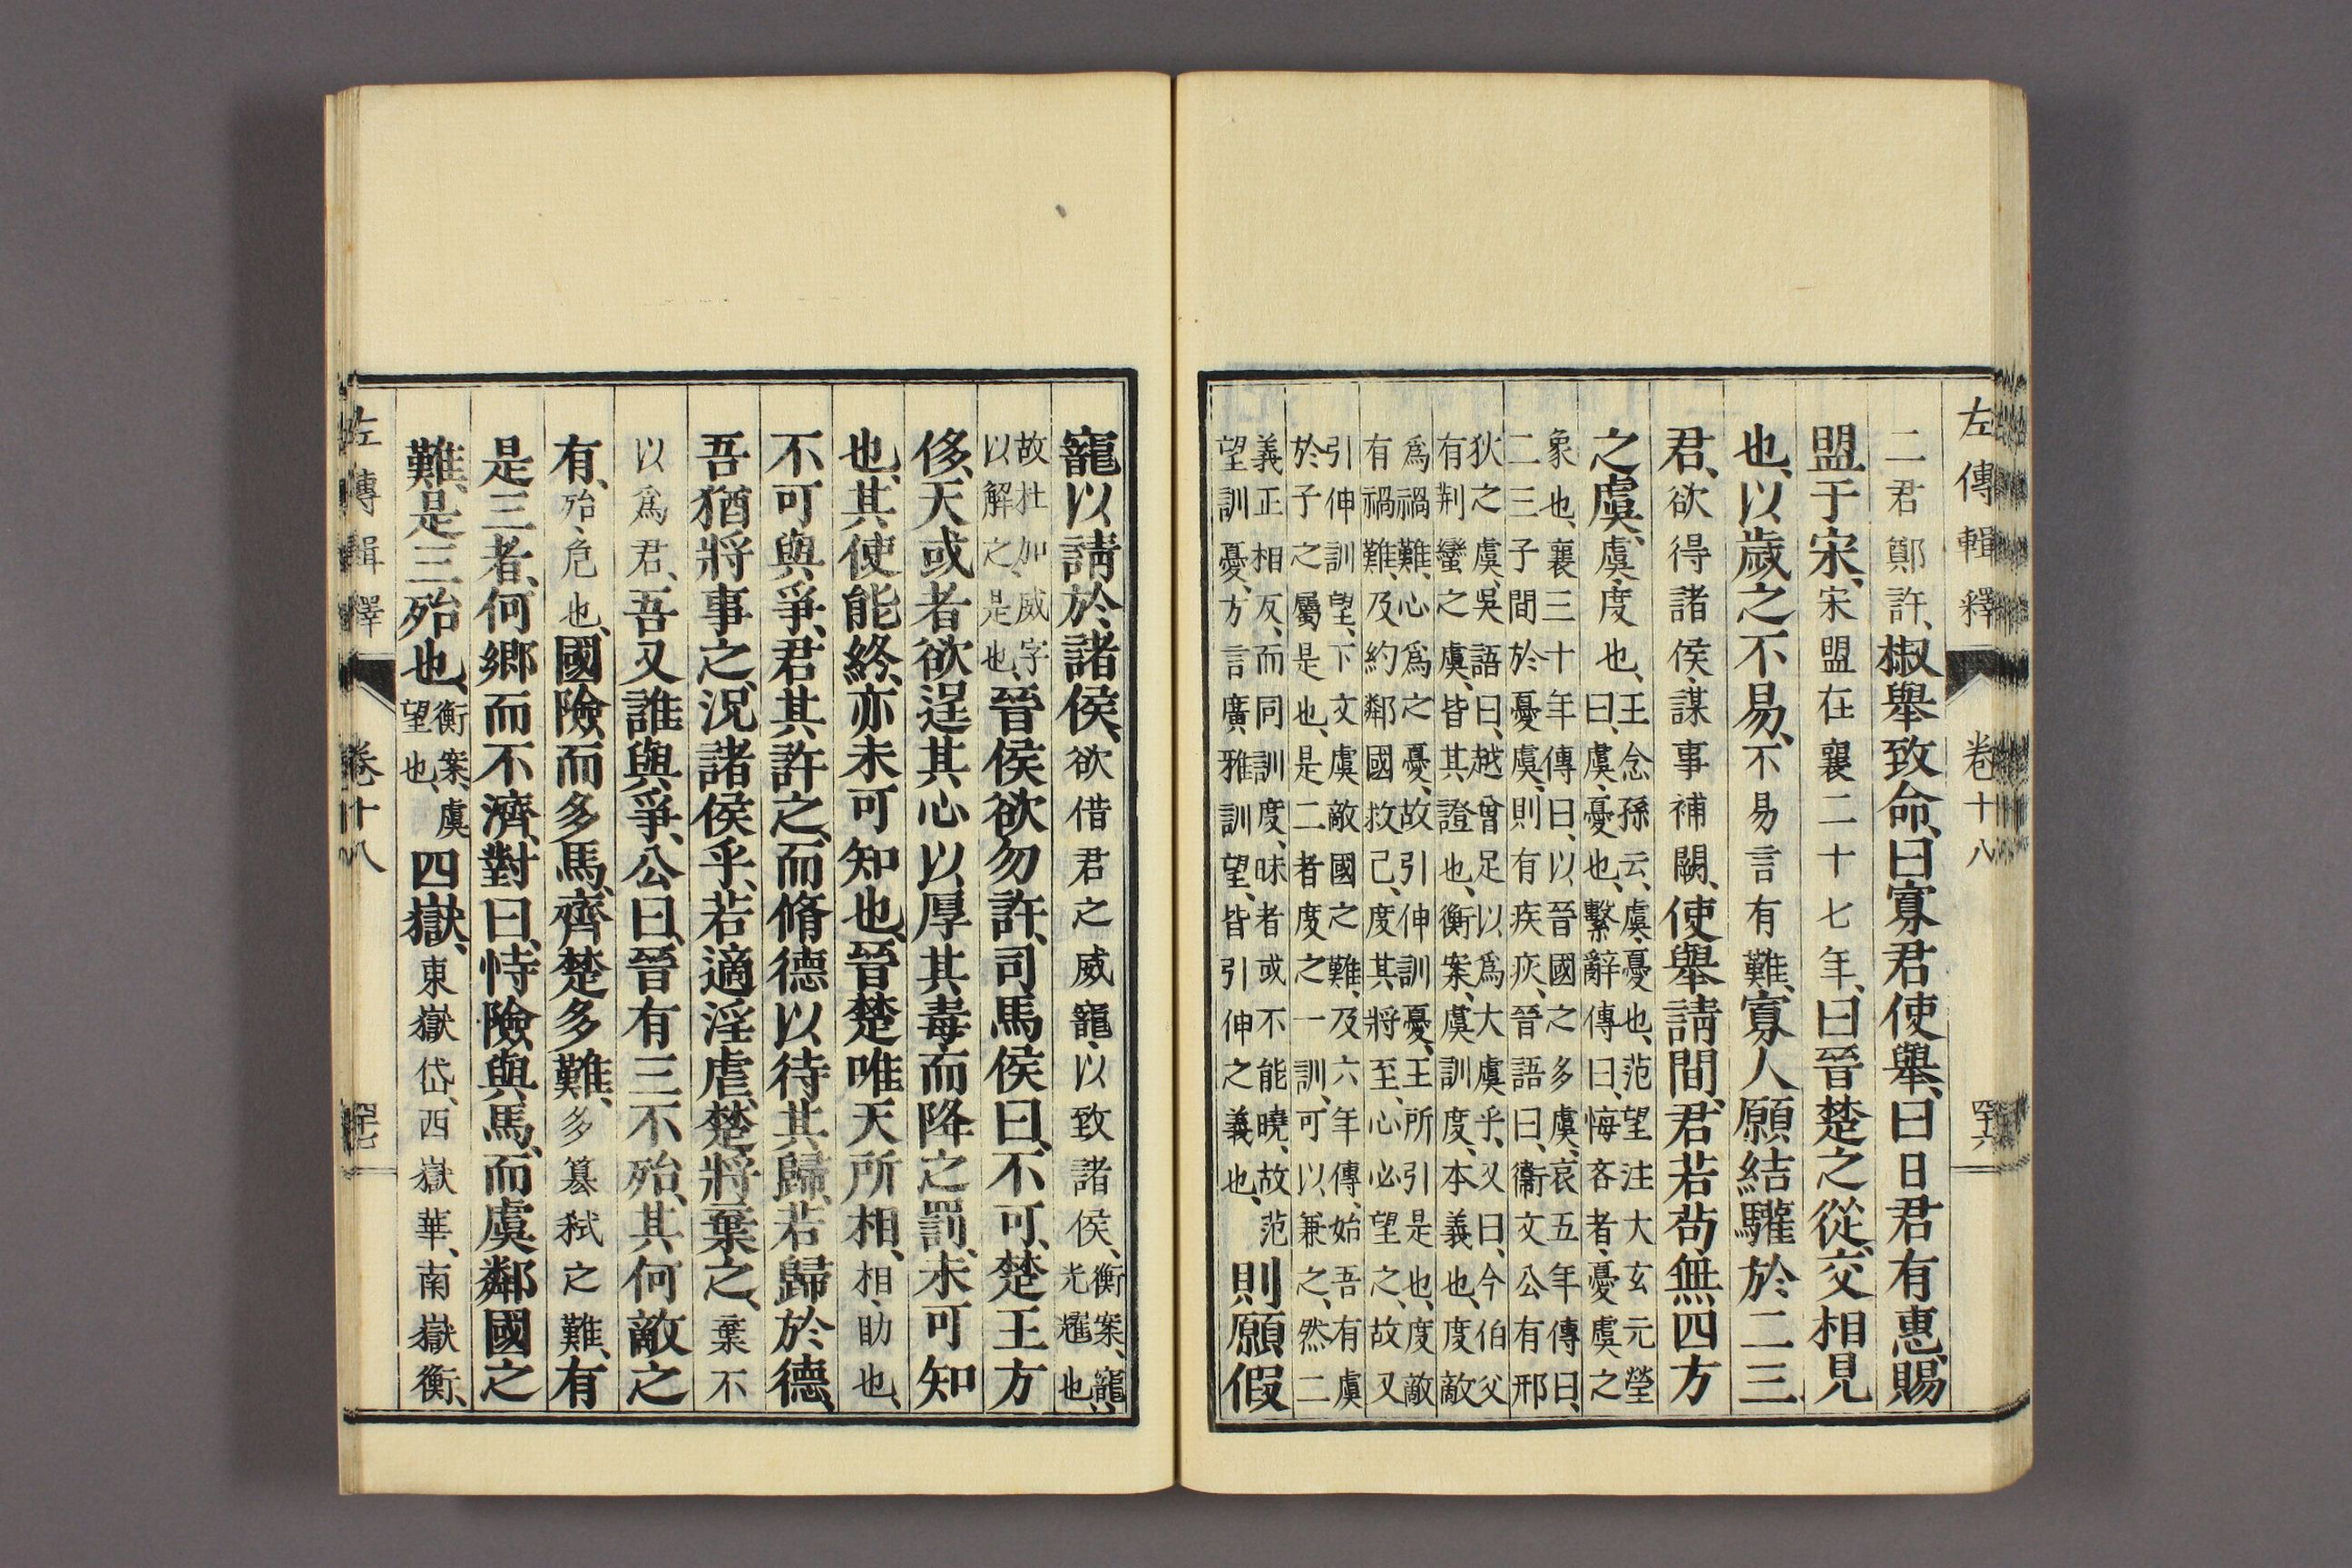 左傳輯釋 卷十八 四十六
二君鄭許、椒舉致命、曰寡君使舉、曰日君有惠、賜
盟于宋、宋盟在襄二十七年、曰晉楚之從、交相見
也、以歲之不易、不易言有難、寡人願結驩於二三
君、欲得諸侯、謀事補闕、使舉請間、君若苟無四方
之虞、虞、度也、王念孫云、虞、憂也、范望注大玄元瑩
曰、虞、憂也、繫辭傳曰、悔吝者、憂虞之
象也、襄三十年傳曰、以晉國之多虞、哀五年傳曰、
二三子間於憂虞、則有疾疢、晉語曰、衞文公有邢
狄之虞、吳語曰、越曾足以爲大虞乎、又曰、今伯父
有荆蠻之虞、皆其證也、衡案、虞訓度、本義也、度敵
爲禍難、心爲之憂、故引伸訓憂、王所引是也、度敵
有禍難、及約鄰國救己、度其將至、心必望之、故又
引伸訓望、下文虞敵國之難、及六年傳、始吾有虞
於子之屬是也、是二者度之一訓、可以兼之、然二
義正相反、而同訓度、昧者或不能曉、故范
望訓憂、方言廣雅訓望、皆引伸之義也、則願假
寵以請於諸侯、欲借君之威寵、以致諸侯、衡案、寵、
光耀也、
故杜加威字
以解之、是也、晉侯欲勿許、司馬侯曰、不可、楚王方
侈、天或者欲逞其心、以厚其毒、而降之罰、未可知
也、其使能終、亦未可知也、晉楚唯天所相、相、助也、
不可與爭、君其許之、而脩德以待其歸、若歸於德、
吾猶將事之、況諸侯乎、若適淫虐、楚將棄之、棄不
以爲君、吾又誰與爭、公曰、晉有三不殆、其何敵之
有、殆、危也、國險而多馬、齊楚多難、多篡弒之難、有
是三者、何鄉而不濟、對曰、恃險與馬、而虞鄰國之
難、是三殆也、衡案、虞
望也、四嶽、東嶽岱、西嶽華、南嶽衡、
左傳輯釋 卷十八 四十七